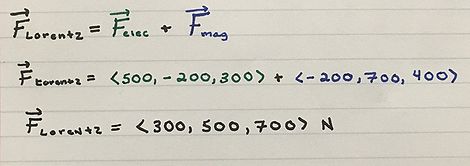 F⃗Lorentz = F⃗elec + F⃗mag
F⃗Lorentz = <500, -200, 300> + <-200, 700, 400>
F⃗Lorentz = <300, 500, 700> N